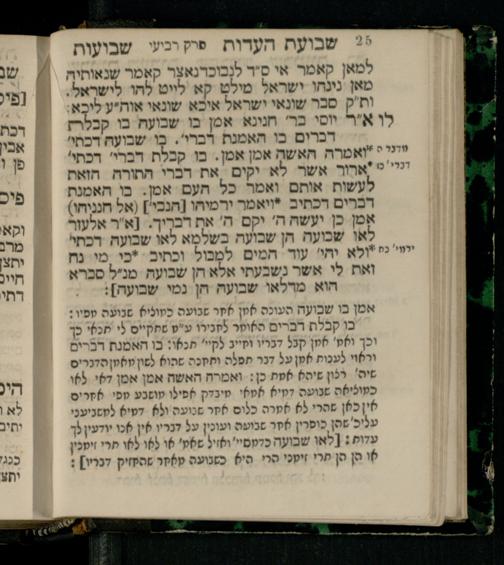 שבועת העדות פרק רביעי שבועות 25
למאן קאמר אי ס״ד לנבוכדנאצר קאמר שנאותיה
מאן נינהו ישראל מילט קא לייט להו לישראל.
ות״ק סבר שונאי ישראל איכא שונאי אוה״ע ליכא:
לו א״ר יוסי בר׳ חנינא אמן בו שבועה בו קבלת
דברים בו האמנת דברי׳. בו שבועה דכתי׳
מדבר ה *ואמרה האשה אמן אמן. בו קבלת דברי׳ דכתי׳
דברי׳ כז *ארור אשר לא יקים את דברי התורה הזאת
לעשות אותם ואמר כל העם אמן. בו האמנת
דברים דכתיב *ויאמר ירמיהו [הנביא] (אל חנניהו)
ירמי׳ כח אמן כן יעשה ה׳ יקם ה׳ את דבריך. [א״ר אלעזר
לאו שבועה הן שבועה בשלמא לאו שבועה דכתי׳
*ולא יהי׳ עוד המים למבול וכתיב *כי מי נח
זאת לי אשר נשבעתי אלא הן שבועה מנ״ל סברא
הוא מדלאו שבועה הן נמי שבועה]:
אמן בו שבועה העונה אמן אחר שבועה כמוציא שבועה מפיו:
בו קבלת דברים האומר לחבירו ע״מ שתקיים לי תנאי כך
וכך ואמ׳ אמן קבל דבריו וחייב לקיי׳ תנאו: בו האמנת דברים
וראוי לענות אמן על דבר תפלה ותחנה שהוא לשון מאמן הדברים
שיה׳ רצון שיהא אמת כן: ואמרה האשה אמן אמן דאי לאו
כמוציאה שבועה דמיא אמאי מיבדק אפילו מושבע מפי אחרים
אין כאן שהרי לא אמרה כלום אחר שבועה ולא דמיא למשביעני
עליכ׳ שהן כופרין אחר שבועה ועונין על דבריו אין אנו יודעין לך
עדות: [לאו שבועה כדמסיי׳ ואזיל שאמ׳ או לאו לאו תרי זימנין
או הן הן תרי זימני הרי היא כשבועה מאחר שהחזיק דבריו]: